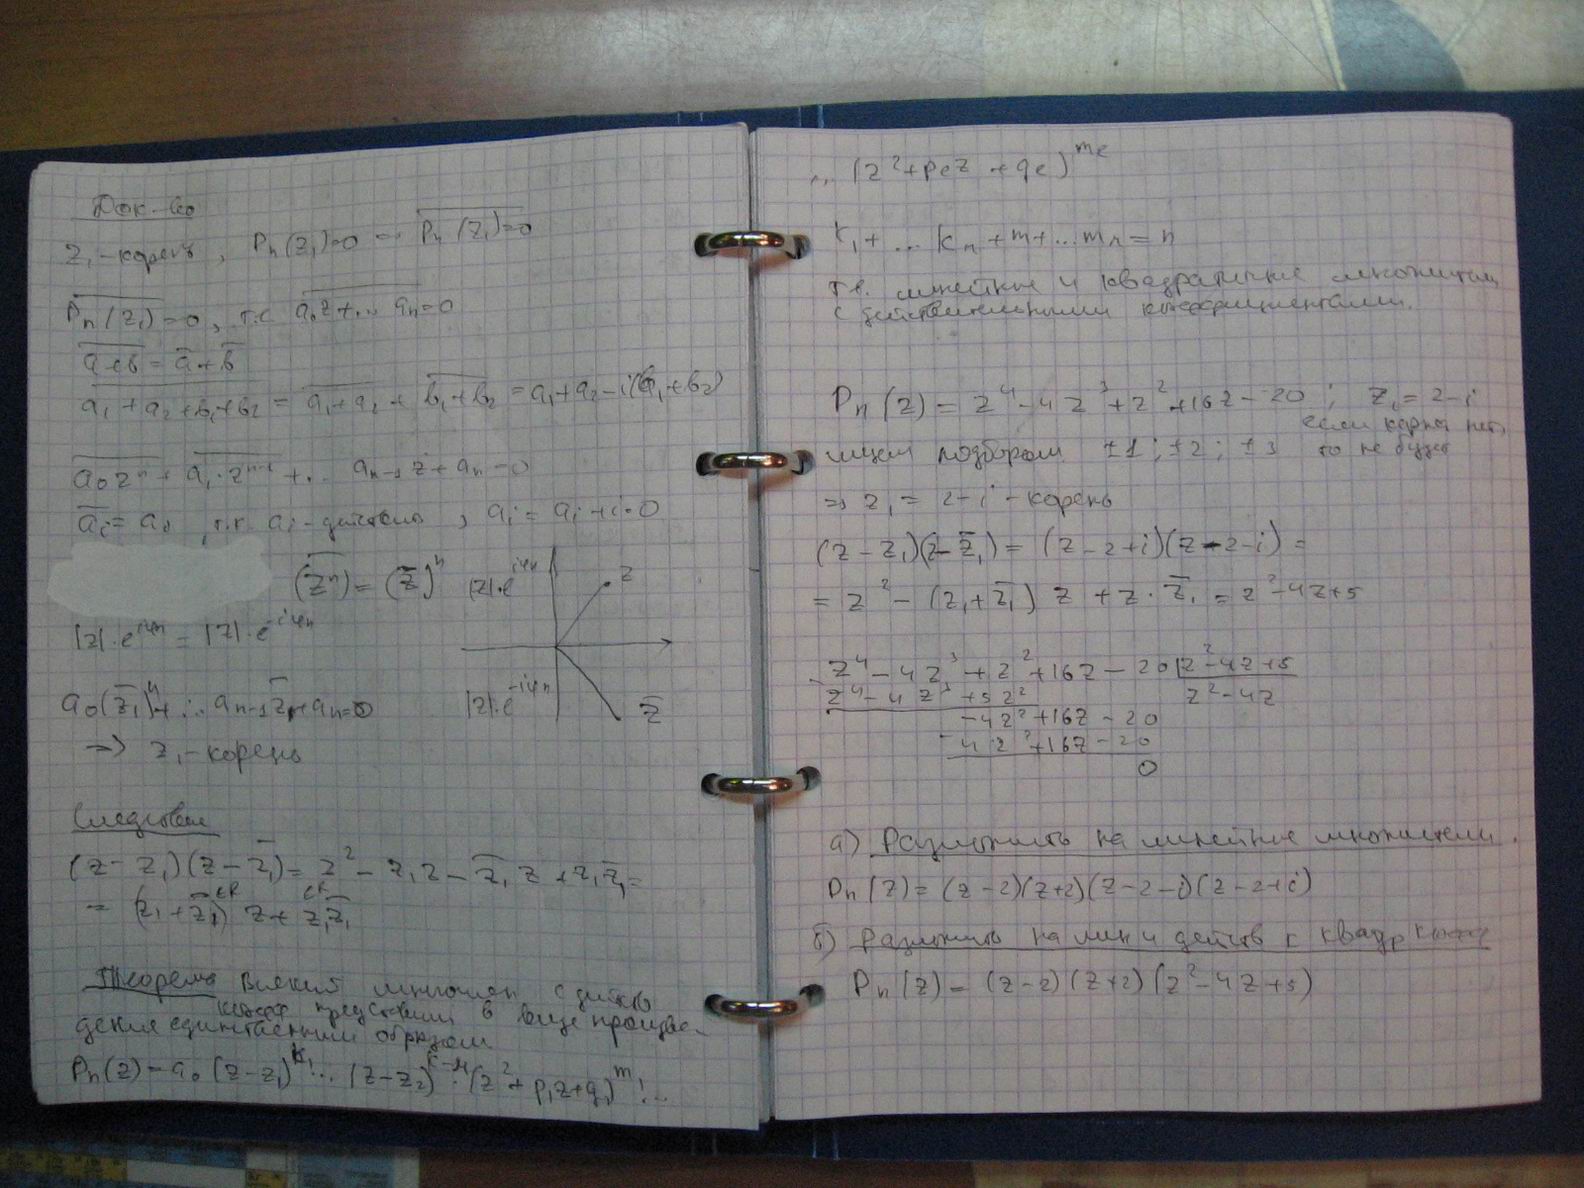 Док-во
z₁-корень, Pn(z₁)=0 — \overline{Pn(z₁)=0}
\overline{Pn(z₁)}=0, т.е. \overline{a₀z+... an}=0
\overline{a+b} = \overline{a}+\overline{b}
\overline{a₁+a₂+b₁+b₂} = \overline{a₁+a₂} + \overline{b₁+b₂} = a₁+a₂-i(b₁+b₂)
\overline{a₀zⁿ} + \overline{a₁·zⁿ⁻¹} +... aₙ₋₁z+aₙ=0
\overline{ai}=ai, т.к. ai-действ , ai=ai+i·0
(\overline{zⁿ}) = (\overline{z})ⁿ |z|·e^{iφn} z
|z|·e^{iφn} = |z|·e^{-iφn}
a₀(\overline{z₁})ⁿ+... aₙ₋₁\overline{z₁}+aₙ=0 |z|·e^{-iφn} \overline{z}
=> z₁-корень
Следствие
(z-z₁)(z-\overline{z₁}) = z²-z₁z-\overline{z₁}z+z₁\overline{z₁}=
= (z₁+\overline{z₁}) ∈R z+ z₁\overline{z₁} ∈R
Теорема Всякий многочлен с действ
коэфф представим в виде произве-
дения единственным образом
Pn(z)=a₀(z-z₁)^{k₁}... (z-z₂)^{k}·(z²+p₁z+q₁)^{m₁}...
... (z²+pez+qe)^{me}
k₁+...kn+m+...mn=n
т.е. линейные и квадратичные множители
с действительными коэффициентами.
Pn(z)=z⁴-4z³+z²+16z-20; z₁=2-i
если корня нет,
ищем подбором ±1; ±2; ±3 то не будет
=> z₁=2-i-корень
(z-z₁)(z-\overline{z₁})=(z-2+i)(z-2-i)=
=z²-(z₁+\overline{z₁})z+z·\overline{z₁}=z²-4z+5
-z⁴-4z³+z²+16z-20|z²-4z+5
z⁴-4z³+5z² z²-4z
-4z²+16z-20
-4z²+16z-20
0
а) Разложить на линейные множители.
Pn(z)=(z-2)(z+2)(z-2-i)(z-2+i)
б) Разложить на лин и действ с квадр
Pn(z)=(z-2)(z+2)(z²-4z+5)